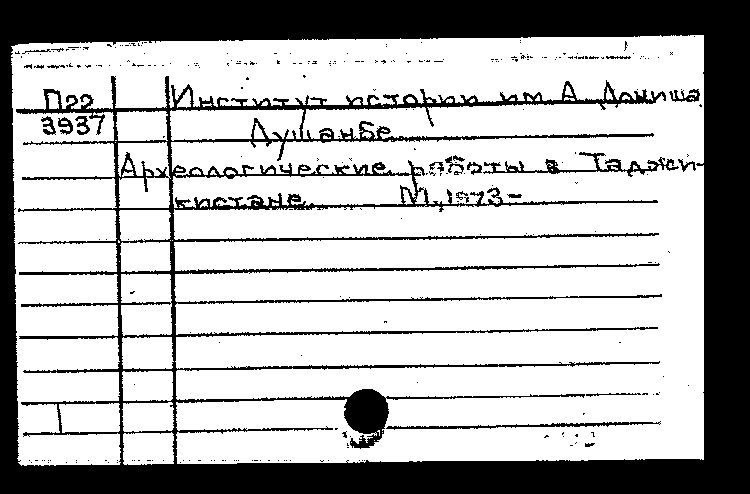 П22 Институт истории им А. Дониша
3937 Душанбе.
Археологические работы в Таджи-
кистане. М., 1973-